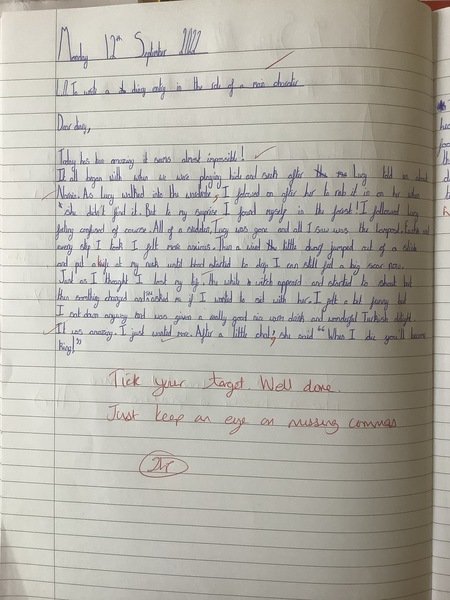 Monday 12th September 2022
L.I To write a diary entry in the role of a main character
Dear diary,
Today has been amazing it seems almost impossible!
It all began with when we were playing hide and seek after the Lucy told us about
Narnia. As Lucy walked into the wardrobe, I followed on after her to rub it in on her when
she didn't find it. But to my surprise I found myself in the forest! I followed Lucy
feling confused of course. All of a sudden, Lucy was gone and all I saw was the lampost. Each and
every step I took I felt more anxious. Then a wierd little dwarf jumped out of a
and put a knife at my neck until blood started to drip I can still feel a big scar now.
Just as I thought I lost my life. The white witch appeared and started to shout but
then something changed and she asked me if I wanted to sit with her. I felt a bit funny but
I sat down anyway and was given a really good nice warm drink and wonderful Turkish delight.
It was amazing. I just wanted more. After a little chat, she said "When I die you'll become
King!"
Tick your target Well done.
Just keep an eye on missing commas